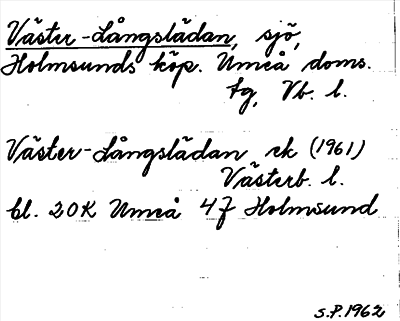 Väster-Långslädan, sjö,
Holmsunds köp. Umeå doms.
tg, Vb. l.
Väster-Långslädan ek (1961)
Västerb. l.
bl. 20K Umeå 4f Holmsund
S.P. 1962